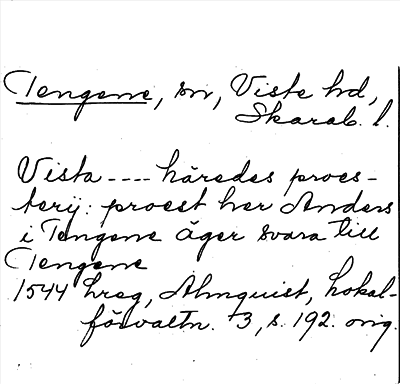 Tengene, sn, Viste hd,
Skarab. l.
Vista ---- häredes proes-
terij: proest her Anders
i Tengene äger svara till
Tengene
1544 hreg, Almquist, Lokal-
förvaltn. 3, s. 192. orig.